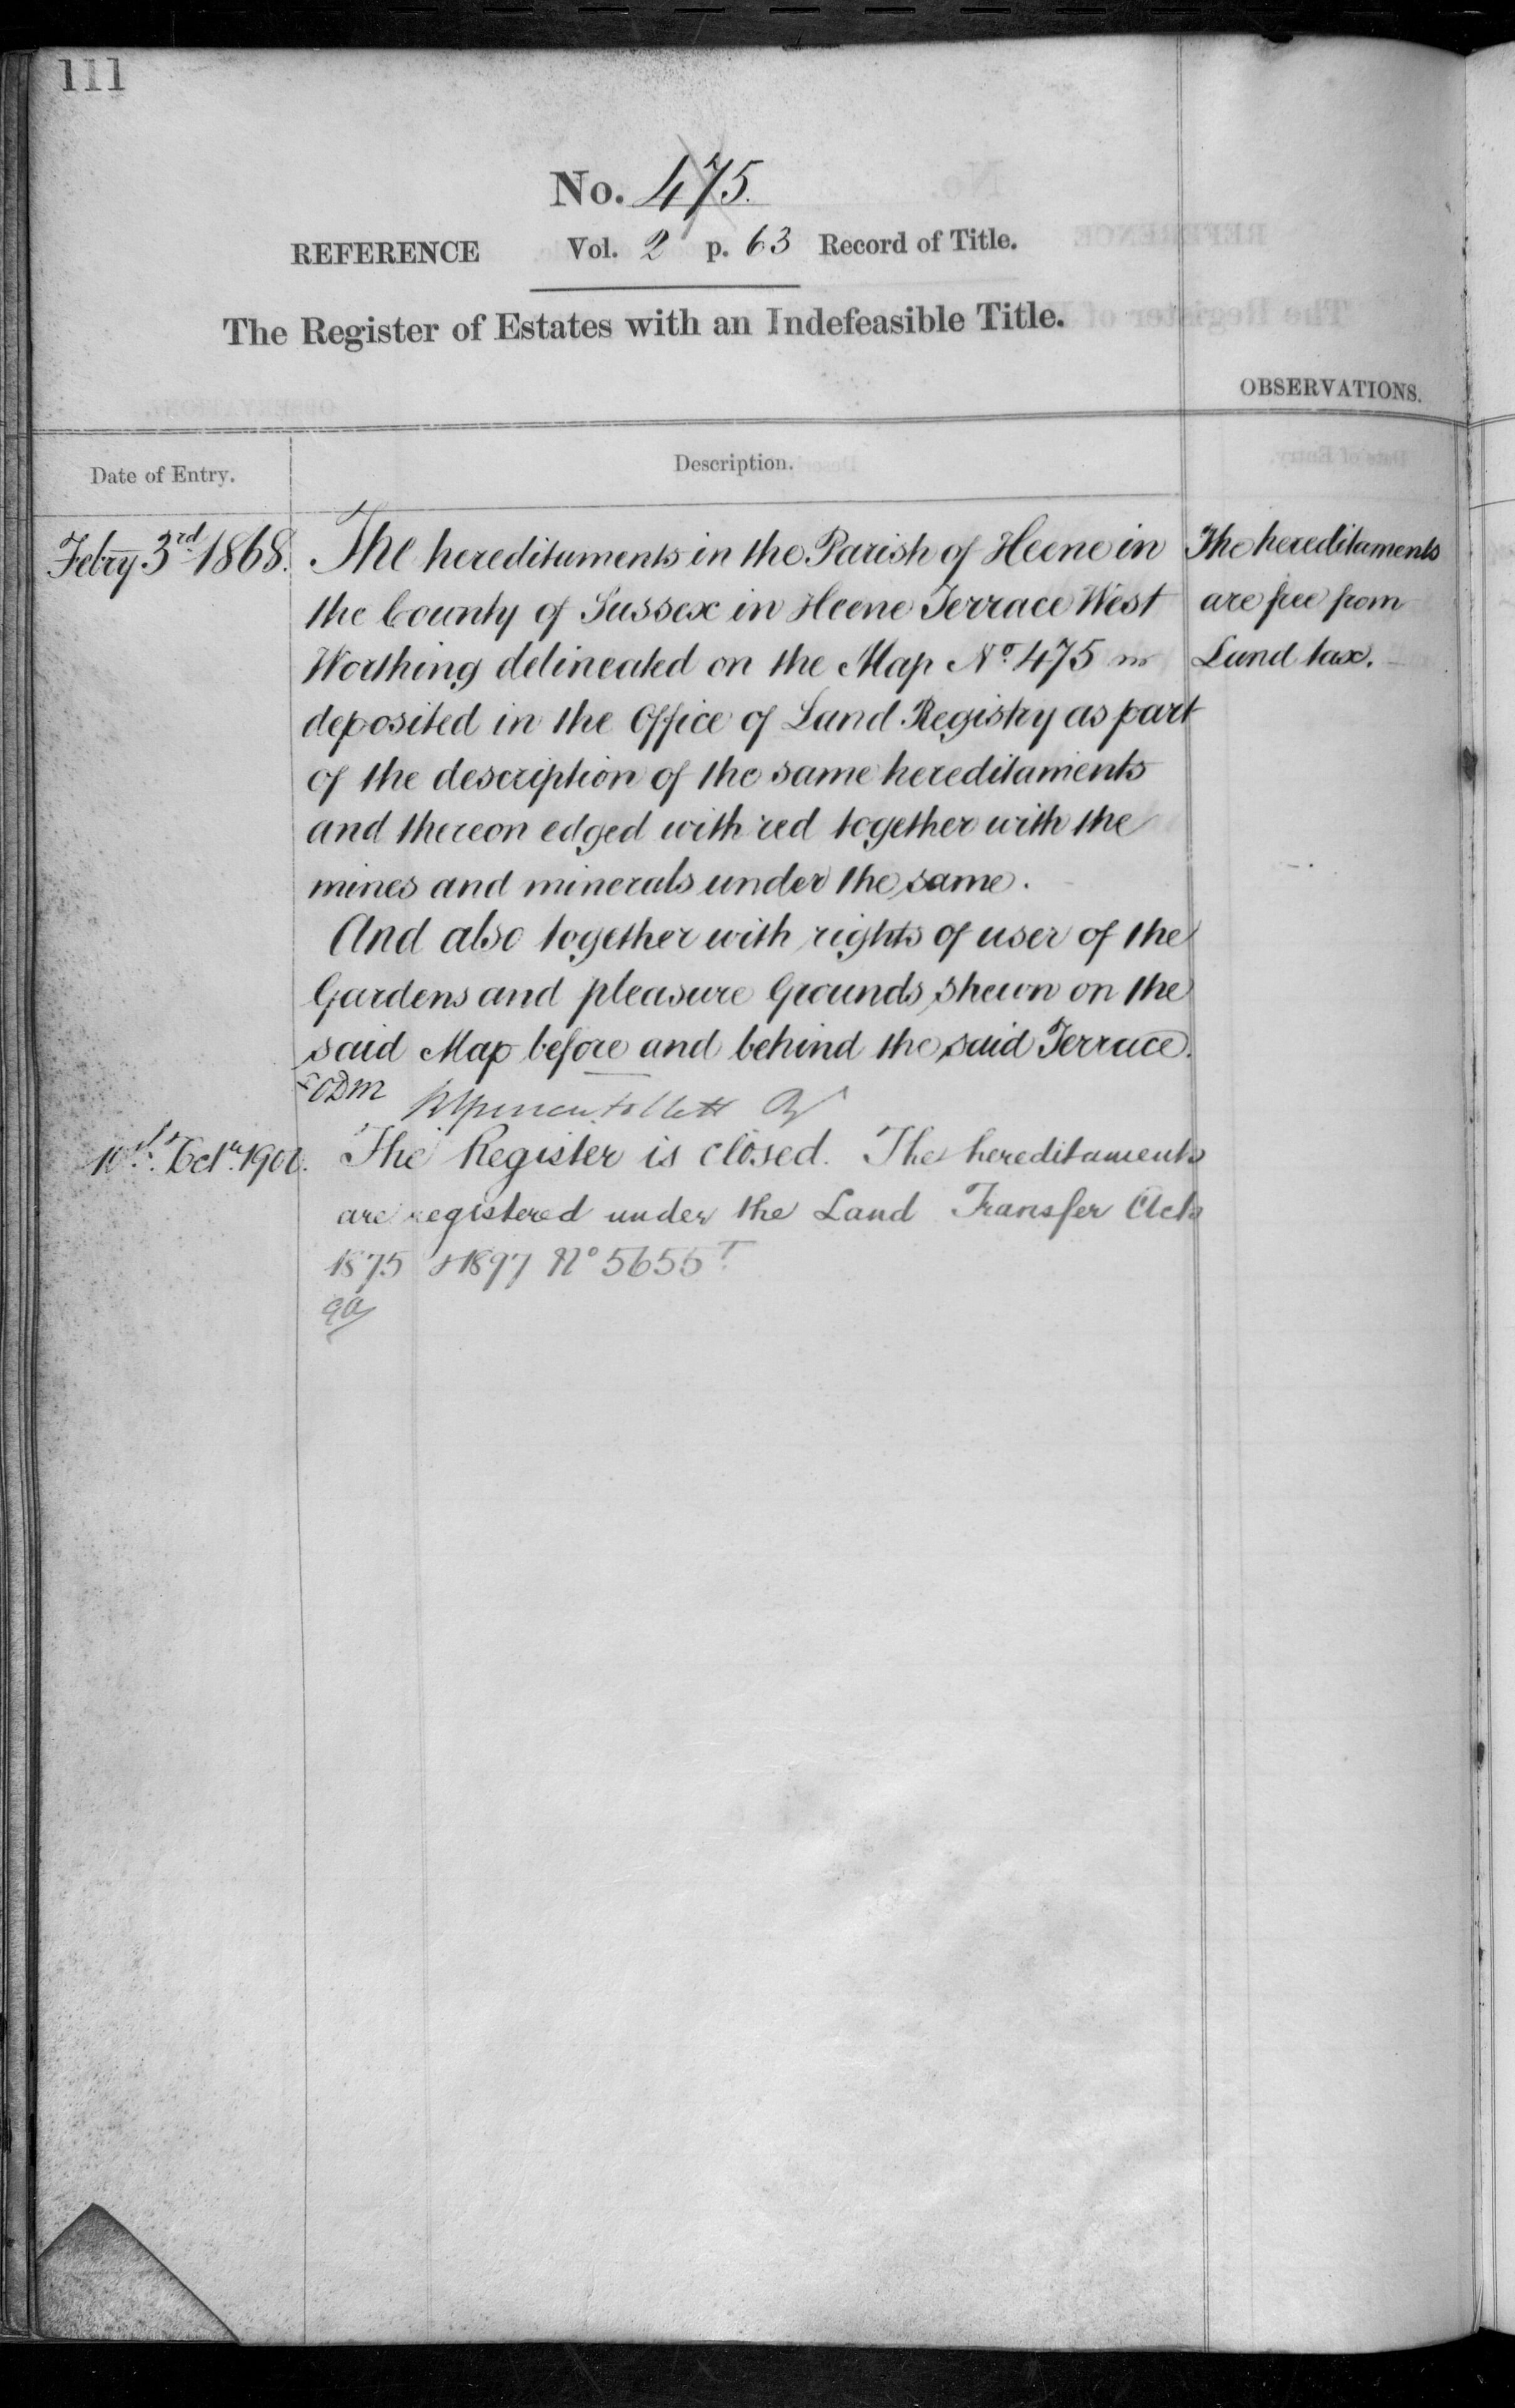 111
No. 475.
REFERENCE Vol. 2 p. 63 Record of Title.
The Register of Estates with an Indefeasible Title.
OBSERVATIONS.
Date of Entry. Description.
Febry 3rd 1868. The hereditaments in the Parish of Heene in
the County of Sussex in Heene Terrace West
Worthing delineated on the Map No. 475
deposited in the Office of Land Registry as part
of the description of the same hereditaments
and thereon edged with red together with the
mines and minerals under the same.
And also together with rights of user of the
Gardens and pleasure Grounds shewn on the
said Map before and behind the said Terrace.
The hereditaments
are free from
Land tax.
The Register is closed. The hereditaments
are registered under the Land Transfer Acts
1875 & 1897 No 5655